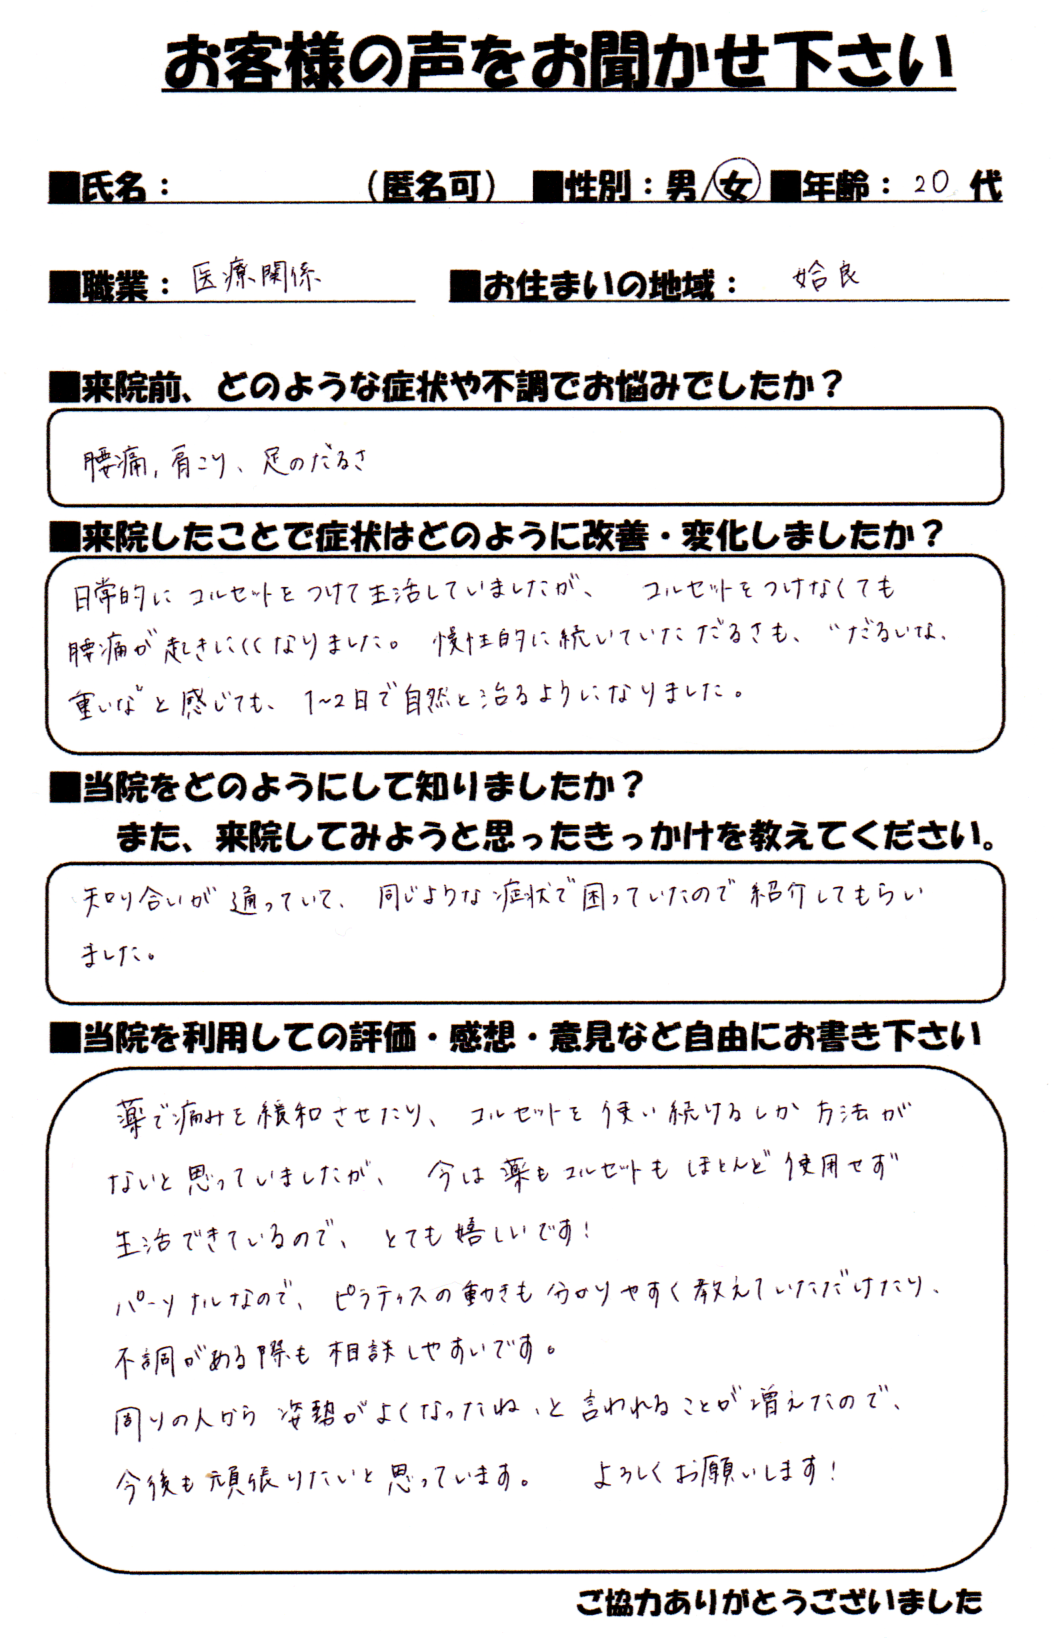 お客様の声をお聞かせ下さい
■氏名： （匿名可） ■性別：男/女 ■年齢： 20 代
■職業： 医療関係 ■お住まいの地域： 姶良
■来院前、どのような症状や不調でお悩みでしたか？
腰痛, 肩こり、足のだるさ
■来院したことで症状はどのように改善・変化しましたか？
日常的にコルセットをつけて生活していましたが、コルセットをつけなくても
腰痛が起きにくくなりました。慢性的に続いていただるさも、“だるいな、
重いな”と感じても、1~2日で自然と治るようになりました。
■当院をどのようにして知りましたか？
また、来院してみようと思ったきっかけを教えてください。
知り合いが通っていて、同じような症状で困っていたので紹介してもらい
ました。
■当院を利用しての評価・感想・意見など自由にお書き下さい
薬で痛みを緩和させたり、コルセットを使い続けるしか方法が
ないと思っていましたが、今は薬もコルセットもほとんど使用せず
生活できているので、とても嬉しいです！
パーソナルなので、ピラティスの動きも分かりやすく教えていただけたり、
不調がある際も相談しやすいです。
周りの人から姿勢がよくなったね、と言われることが増えたので、
今後も頑張りたいと思っています。 よろしくお願いします！
ご協力ありがとうございました